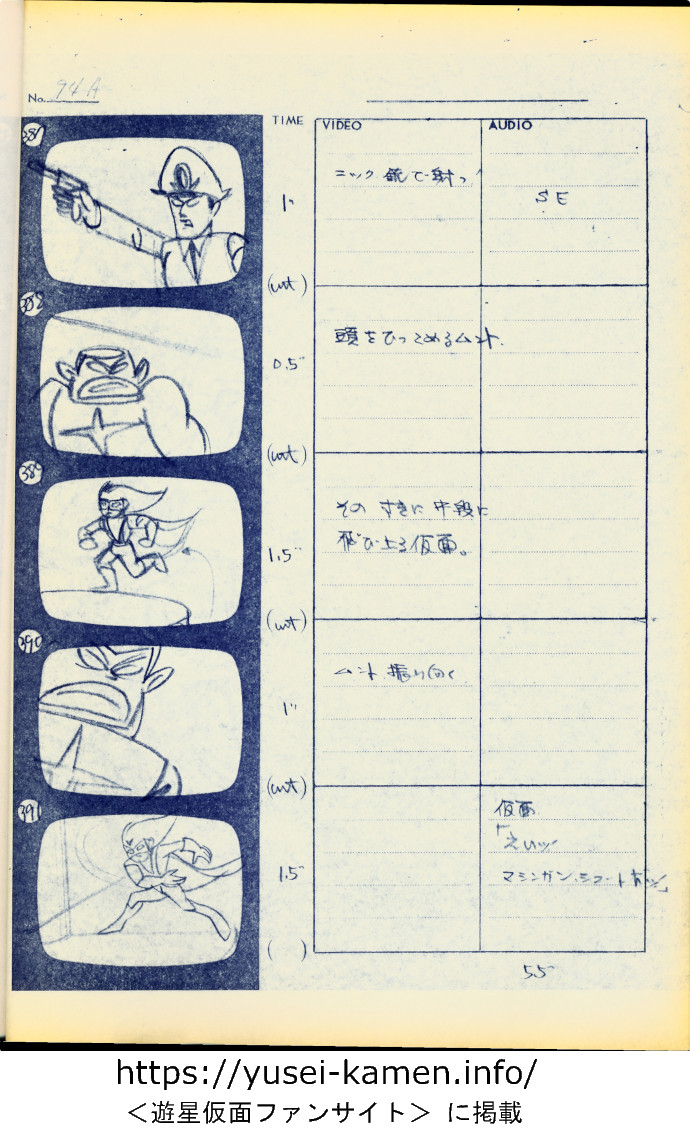 No. 94 A
TIME
VIDEO
AUDIO
387
1"
(cut)
ニック 銃で射つ
SE
388
0.5"
(cut)
頭をひっこめるムント.
389
1.5"
(cut)
その すきに 中段に
飛び上る仮面。
390
1"
(cut)
ムント 振り向く
391
1.5"
( )
仮面
「えいッ
マシンガン、シュート
55
https://yusei-kamen.info/
＜遊星仮面ファンサイト＞ に掲載